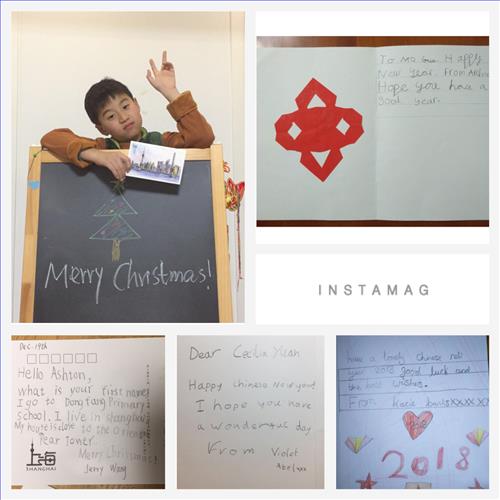 Merry Christmas!
Hope you have a
good year.
INSTAMAG
Dec. 19th
Hello Ashton,
what is your first name?
I go to Dongfang Primary
School. I live in Shanghai
My house is close to the Oriental
Pearl Tower.
Merry Christmas!
Jerry Wang
上海
SHANGHAI
Dear Cecilia Yuan
Happy Chinese New year!
I hope you have
a wonderful day
From Violet
have a lovely chinese new
year 2018 good luck and
the best wishes.
From
2018